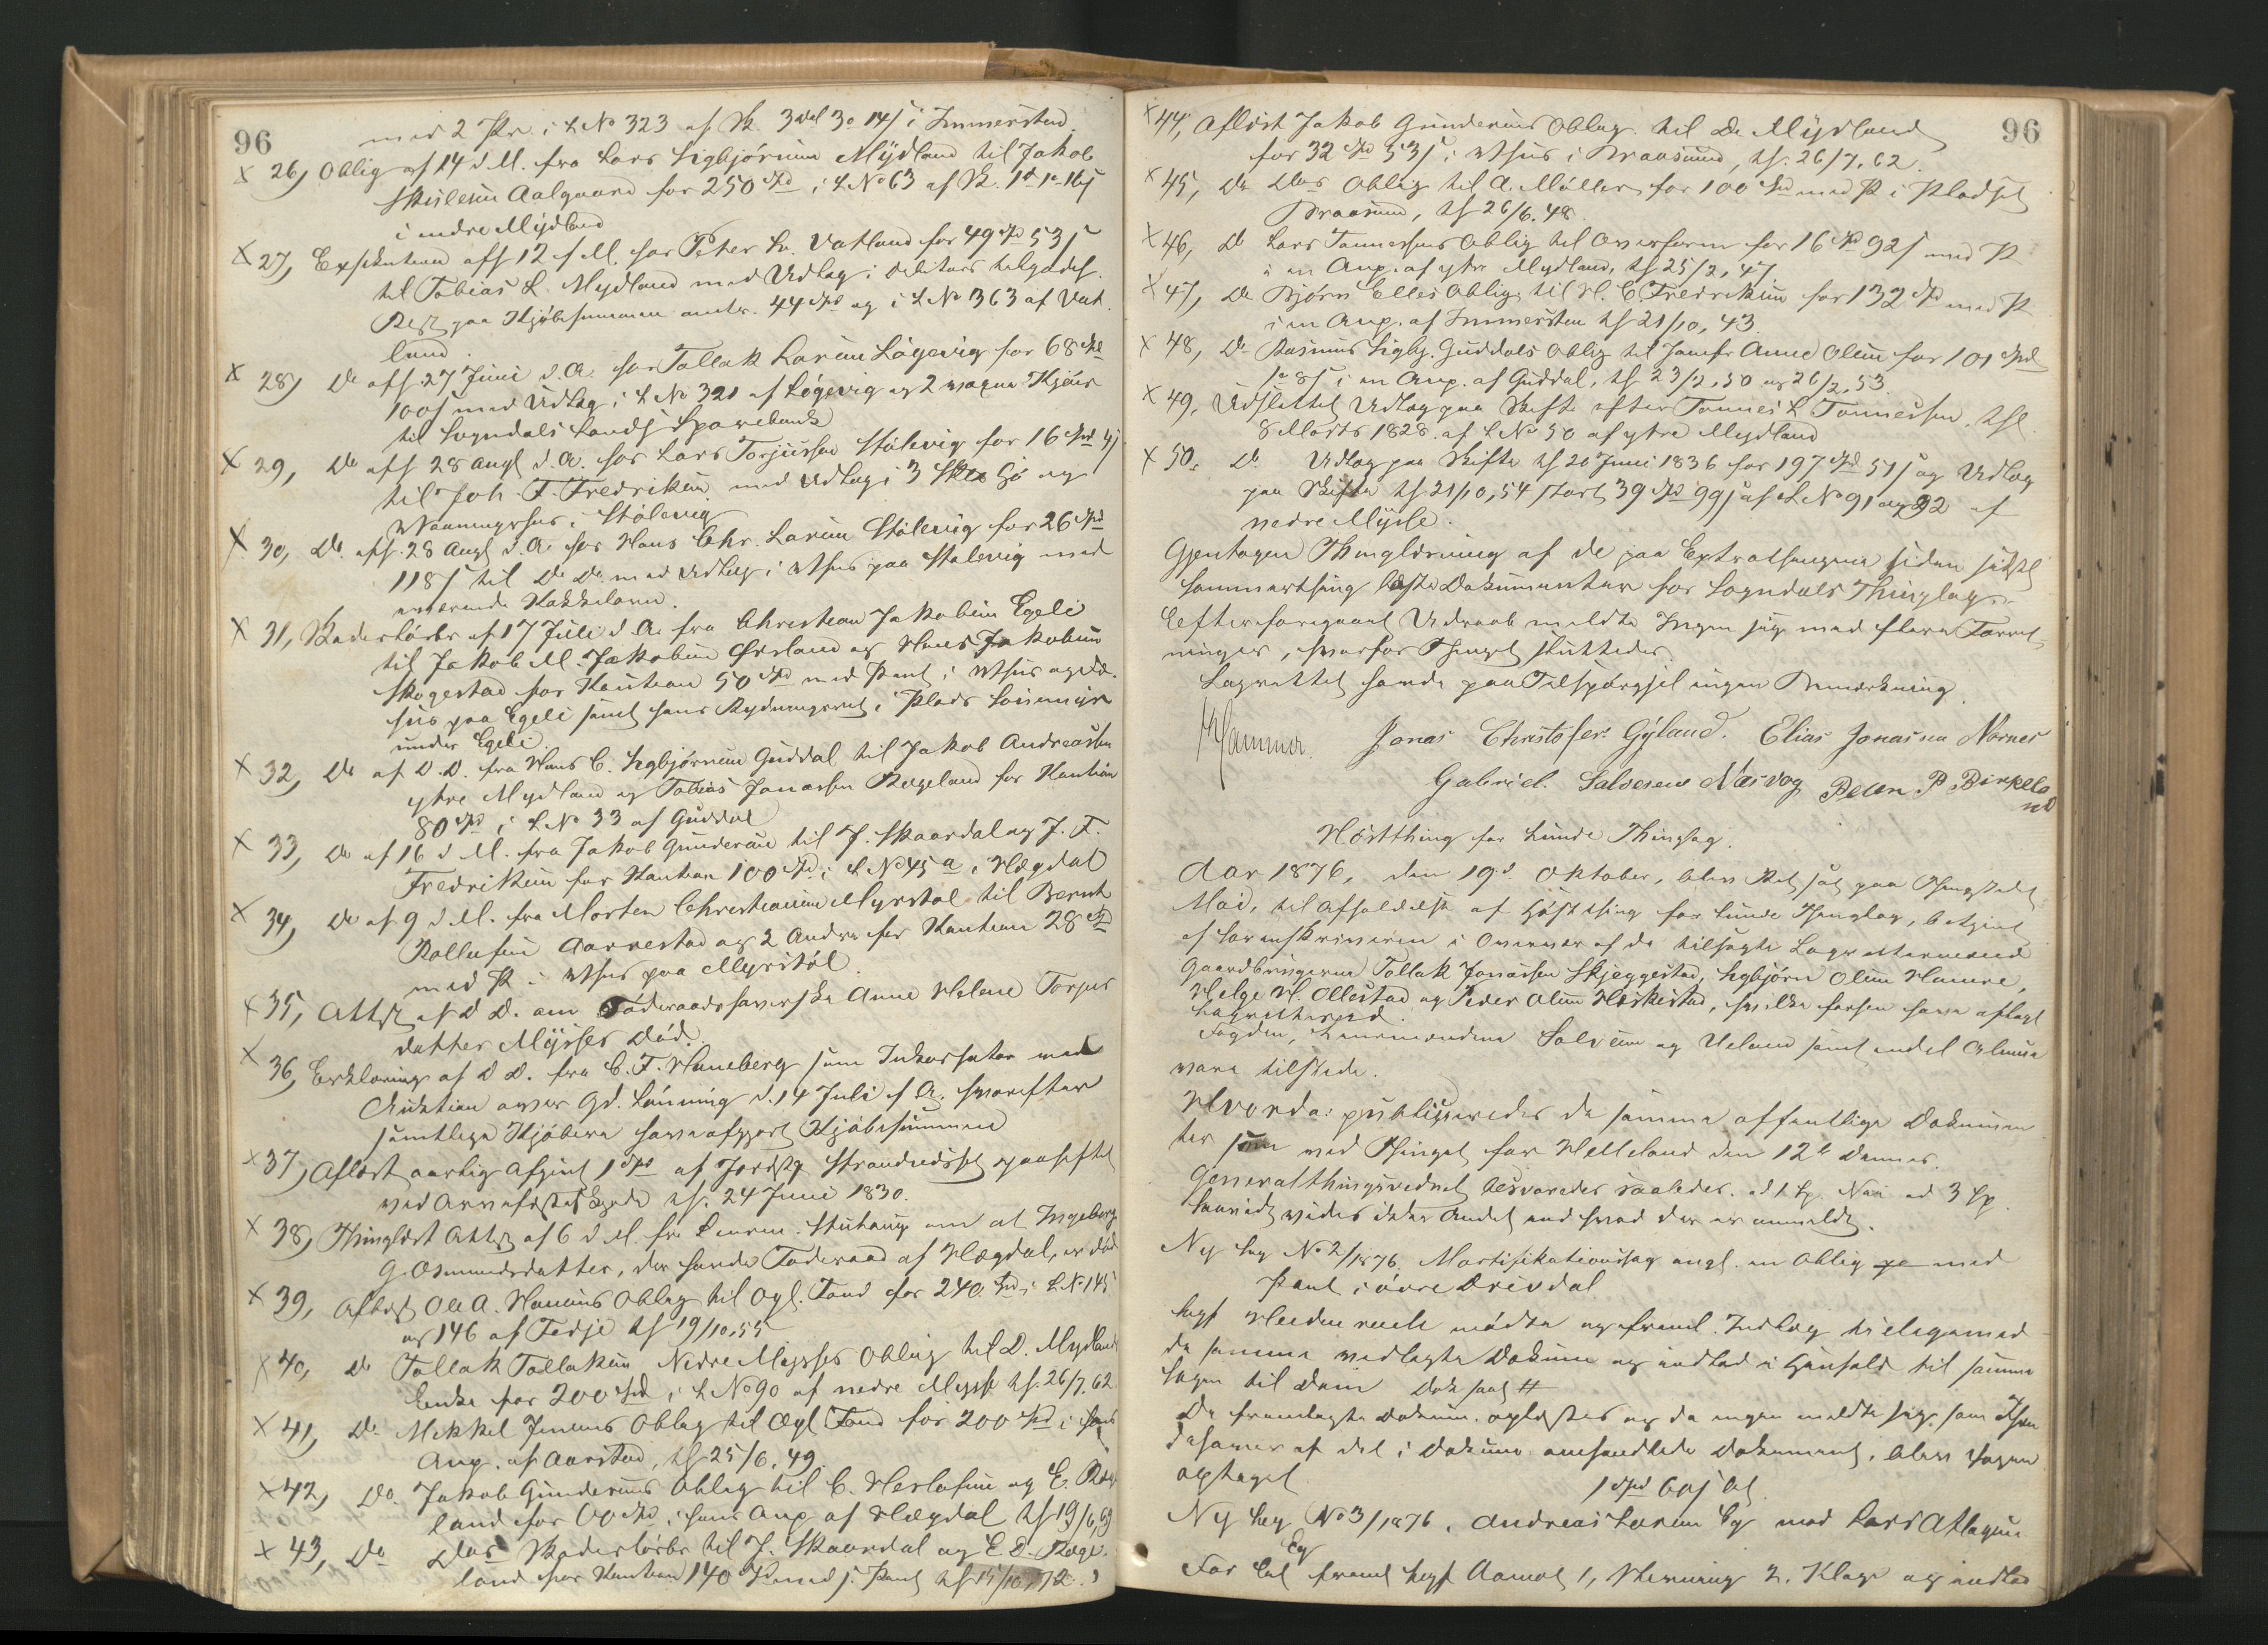 96
med 2 Pr. i L No 323 af Sk. 3 dal 3o 14 s i Immerstein
x 26, Oblig af 14 d M. fra Lars Sigbjörnsen Mydland til Jakob
Skulesen Aalgaard for 250 Spd i L No 63 af Sk. 1d 1o 16 s
i indre Mydland
x 27, Exekution aff 12 f M. hos Peter Ls. Vatland for 49 Spd 53 s
til Tobias L. Mydland med Udlæg i Debitors tilgodeh.
Rest paa Kjöbesummen omtr. 44 Spd og i L No 363 af Vat
land.
x 28, Do aff 27 Juni d. A. hos Tollak Larsen Lögevig for 68 Spd
100 s med Udlæg i L No 321 af Lögevig og 2 magre Kjöer
til Sogndals Lands Sparebank
x 29, Do aff 28 Aug d. A. hos Lars Torjussen Stölevig for 16 Spd 4 s
til Joh. F. Fredriksen med Udlæg i 3 og
Vaaningshus, Stölevig
x 30, Do. aff. 28 Aug d. A. hos Hans Chr. Larsen Stölevig for 26 Spd
118 s til Do Do med Udlæg i Vhus paa Stölevig med
værende Kakkelovn.
x 31, Skadeslösbr af 17 Juli d A. fra Christian Jakobsen Egeli
til Jakob M. Jakobsen Örsland og Hans Jakobsen
Skogestad for Kaution 50 Spd med Pant i Vhus og
hus paa Egeli samt hans Rydningsret i Plads
under Egeli.
x 32, Do af D. D. fra Hans C. Sigbjörnsen Guddal til Jakob Andreassen
ytre Mydland og Tobias Jonassen Rægeland for Kaution
80 Spd i L No 33 af Guddal
x 33, Do af 16 d M. fra Jakob Gundersen til J. Skaardal og J. F.
Fredriksen for Kaution 100 Spd i L No 45 a i Hægdal
x 34, Do af 9 d M. fra Morten Christiansen Myrstøl til Bernt
Rollefsen Aarrestad og 2 Andre for Kaution 28 Spd
med Pt i Vhus paa Myrstöl.
x 35, Attest af D D. om Föderaadshaverske Anne Helene Torjus
datter Mysses Död.
x 36, Erklæring af D D. fra C. F. Haneberg som Inkassator ved
Auktion over Gd. Lönning d. 14 Juli f A. hvorefter
samtlige Kjöbere have afgjort Kjöbesummen
x 37, Aflöst aarlig Afgivt 1 Spd af Jordstg Strandudset paaheftet
ved Arvefæsteskjöde tl. 24 Juni 1830.
x 38, Thinglæst Attest af 6 d M. fra om at Ingeborg
G. Osmundsdatter, der havde Föderaad af Hægdal, er död
x 39, Aflæst Ole A. Hansens Oblig til Opl. Fond for 240 Spd i L No 145
og 146 af Fedje tl 19/10.55
x 40, Do Tollak Tollaksen Nedre Mysses Oblig til D. Mydlands
Enke for 200 Spd i L No 90 af nedre Mysse tl. 26/7.62
x 41, Do Mikkel Jensens Oblig til Opl Fond for 200 Spd i hans
Anp. af Aarstad, tl 25/6.49.
x 42, Do. Jakob Gundersens Oblig til C. Herlofsen og E. Ræge
land for 60 Spd i hans Anp af Hægdal tl 19/6,69
x 43, Do Dos Skadeslösbr til J. Skaardal og E. D. Ræge
land for Kaution 140 Spd med s. Pant tl 15/10,72.
96
x 44, Aflöst Jakob Gundersens Oblig. til D. Mydland
for 32 Spd 53 s i Vhus i Braasund, tl. 26/7.62.
x 45, Do Dos Oblig til A. Möller for 100 Spd med Pt i Pladset
Braasund, tl 26/6.48.
x 46, Do Lars Tønnessens Oblig til Overform for 16 Spd 92 s med Pt
i en Anp. af ytre Mydland, tl 25/2,47.
x 47, Do Bjørn Elles Oblig til H. C. Fredriksen for 132 Spd med Pt
i en Anp. af Immerstein tl 21/10, 43.
x 48, Do Rasmus Sigbj. Guddals Oblig til Jomfr Anne Olsen for 101 Spd
1o 8 s i en Anp. af Guddal, tl 23/2,50 og 26/2,53
x 49, Udslettet Udlæg paa Skifte efter Tønnes L Tønnessen, tl
8 Marts 1828. af L No 50 af ytre Mydland
x 50. Do Udlæg paa Skifte tl 20 Juni 1836 for 197 Spd 51 s og Udlæg
paa Skifte tl 21/10,54 stort 39 Spd 99 s af L No 91 og 92 af
nedre Mysse.
Gjentagen Thinglæsning af de paa Extrathingene siden sidste
Sommerthing læste Dokumenter for Sogndals Thinglag.
Efter foregaaet Udraab meldte Ingen sig med flere Forret-
ninger, hvorfor Thinget sluttedes
Lagrettet havde paa Tilspörgsel ingen Bemærkning.
Hammer. Jonas Christofers. Gyland. Elias Jonassen Nornes
Gabriel. Salvesen Næsvog Peder P Birkela
nd
Höstthing for Lunde Thinglag.
Aar 1876, den 19d Oktober, blev Ret sat paa Thingstedet
Moi, til Afholdelse af Höstthing for Lunde Thinglag, betjent
af Sorenskriveren i Overvær af de tilsagte Lagrettemænd
Gaardbrugerne Tollak Jonassen Skjeggestad, Sigbjörn Olsen Hamre,
Helge H. Ollestad og Peder Olsen Heskestad, hvilke forhen have aflagt
Lagretteseed.
Fogden, Lensmændene Salvesen og Ueland samt endel Almue
vare tilstede.
Hvorda: publiceredes de samme offentlige Dokumen
ter som ved Thinget for Helleland den 12te dennes.
Generalthingsvidnet besvaredes saaledes. ad 1 Sp. Nei ad 3 Sp.
saavidt vides ikke Andet end hvad der er anmeldt.
Ny Sag No 2/1876. Mortifikationssag angl. en Oblig med
Pant i övre Drivdal
Sagf Heidenreich mödte og freml. Indlæg tilligemed
de samme vedlagte Dokum og indlod i Henhold til samme
Sagen til Dom Dok saal #
De fremlagte Dokum. oplæstes og da ingen meldte sig som Ihæn
dehaver af det i Dokum omhandlede Dokument, blev Sagen
optaget
1 Spd 60 s bet.
Ny Sag No 3/1876. Andreas Larsen Eg mod Lars Atlagsen
Eg
For Cit freml Sagf Aamot 1, Stevning 2. Klage og indlod